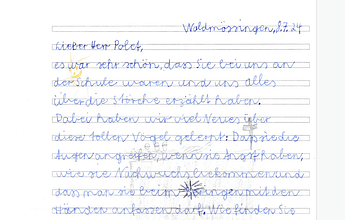 Waldmössingen, 8.7.24
Lieber Herr Polet,
es war sehr schön, dass Sie bei uns an
der Schule waren und uns alles
über die Störche erzählt haben.
Dabei haben wir viel Neues über
diese tollen Vögel gelernt: Dass sie die
Augen angreifen, wenn sie Angst haben,
wie sie Nachwuchs bekommen und
dass man sie beim Beringen mit den
Händen anfassen darf. Wo finden Sie